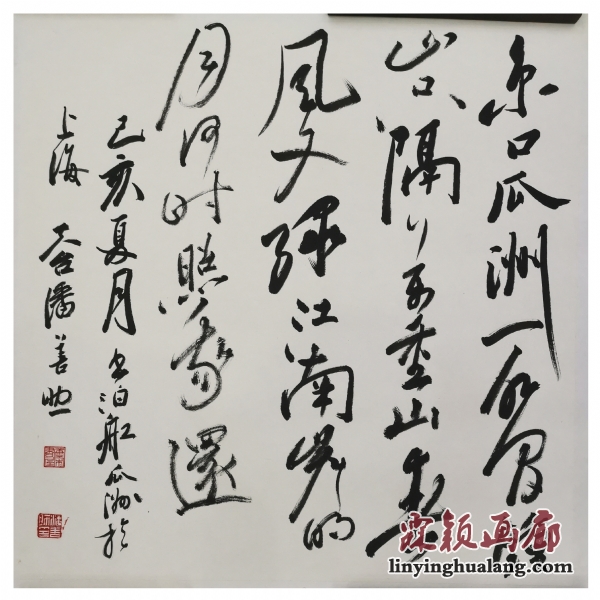 京口瓜洲一水间鍾
山只隔數重山春
風又绿江南岸明
月何时照我還
己亥夏月书泊船瓜洲於
上海 潘善助
霖颖画廊
linyinghualang.com